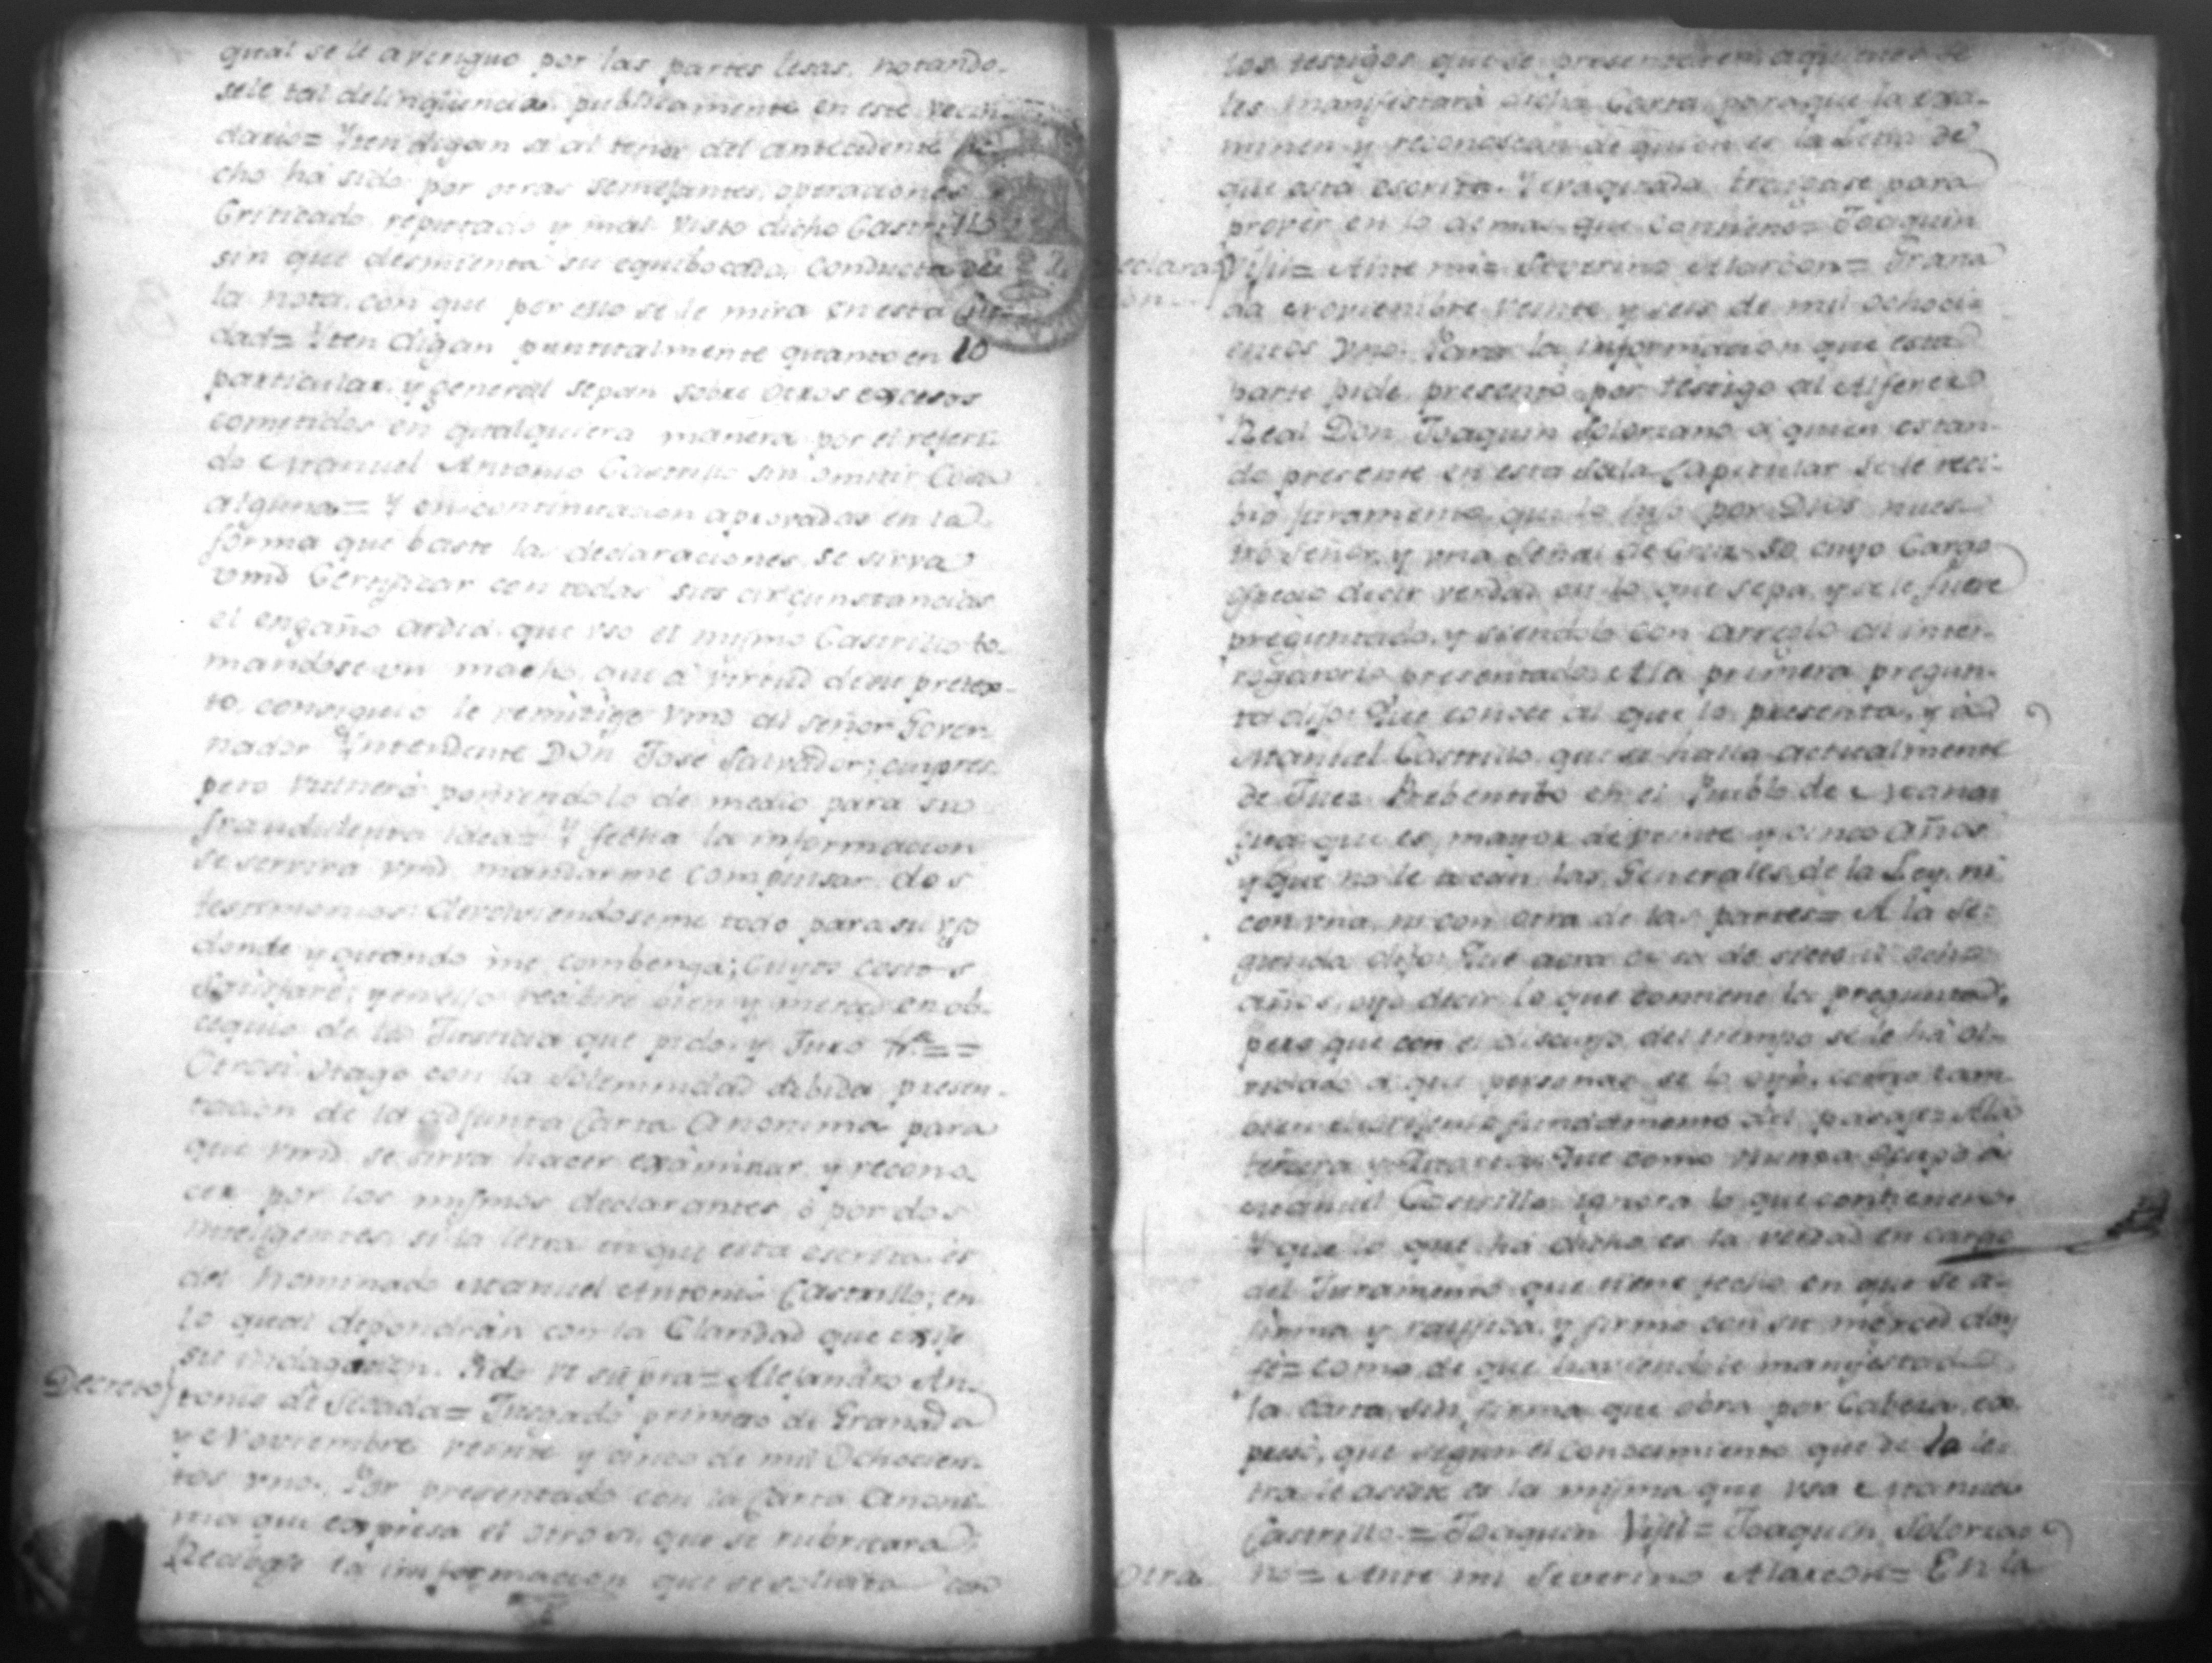 qual se le averiguo por las partes lesas, notando-
sele tal delinqüencia publicamente en este vecin-
dario= Yten digan si al tenor del antecedente he-
cho há sido por otras semejantes operaciones
Criticado, reputado y mal visto dicho Castrillo
sin que desmienta su equibocada conducta de
la nota con que por ello se le mira en esta Ciu-
dad= Yten digan puntualmente quanto en lo
particular, y general sepan sobre otros excesos
cometidos en qualquiera manera por el referi-
do Manuel Antonio Castrillo sin omitir Cosa
alguna= Y en continuacion aprovadas en la
forma que baste las declaraciones, se sirva
vmd Certificar con todas sus circunstancias
el engaño ardid que uso el mismo Castrillo to-
mandose un macho, que á virtud de su pretex-
to, consiguió le remitiese vmd al señor Gover-
nador Yntendente Don José Salvador; cuyo res-
peto vulneró poniendolo de medio para su
fraudulenta idea= Y fecha la informacion
se servira vmd mandarme compulsar dos
testimonios devolviendoseme todo para su uso
donde y quando me combenga; cuyos costos
satisfaré; y en ello recibiré bien y merced en ob-
sequio de la Justicia que pido, y Juro &ᵃ==
Otrosi Hago con la solemnidad debida presen-
tacion de la adjunta Carta Anonima para
que vmd se sirva hacer exâminar, y recono-
cer por los mismos declarantes ó por dos
inteligentes, si la letra en que está escrita es
del nominado Manuel Antonio Castrillo; en
lo qual depondrán con la Claridad que exije
su indagacion. Pido ut supra= Alejandro An-
Decreto) tonio de Secada= Juzgado primero de Granada
y Noviembre veinte y cinco de mil Ochocien-
tos uno. Por presentado con la Carta Anoni-
ma que expresa el otro si, que se rubricará;
Recibase la informacion que se solicita con
los testigos que se presentaren, a quienes se
les manifestará dicha Carta para que la exa-
minen y reconoscan de quien es la Letra de
que está escrita. Y evaquada traigase para
proveer en lo demas que conviene= Joaquin
Declara- Vijil= Ante mi= Severino Alarcon= Grana-
cion da Noviembre veinte y seis de mil ochoci-
entos uno. Para la informacion que esta
parte pide presentó por testigo al Alferez
Real Don Joaquin Solorzano á quien estan-
do presente en esta Sala Capitular se le reci-
bio juramento, que lo hizo por Dios nues-
tro Señor, y una Señal de Cruz so cuyo Cargo
ofrecio decir verdad en lo que sepa, y se le fuere
preguntado, y siendolo con arreglo al inter-
rogatorio presentado: A la primera pregun-
ta dijo: Que conoce al que lo presenta, y á
Manuel Castrillo, que se halla actualmente
de Juez Prebentibo en el Pueblo de Mana-
gua que es mayor de veinte y cinco años
y que no le tocan las Generales de la Ley, ni
con una, ni con otra de las partes= A la se-
gunda dijo: Que aora cosa de siete ú ocho
años, oyo decir lo que contiene la pregunta,
pero que con el discurso del tiempo se le há ol-
vidado á que personas se lo oyó, como tam-
bien el fundamento del pasaje= A la
tercera y Quarta: Que como nunca á
Manuel Castrillo, ignora lo que contienen.
Y que lo que há dicho es la verdad en cargo
del Juramento que tiene fecho en que se a-
firma y ratifica, y firmó con su merced doy
fé= como de que haviendole manifestado
la carta sin firma que obra por Cabeza, ex-
presó, que segun el conocimiento que de la le-
tra le asiste es la misma que usa Manuel
Castrillo.= Joaquin Vijil= Joaquin Solorza-
Otra no= Ante mi Severino Alarcon= En la